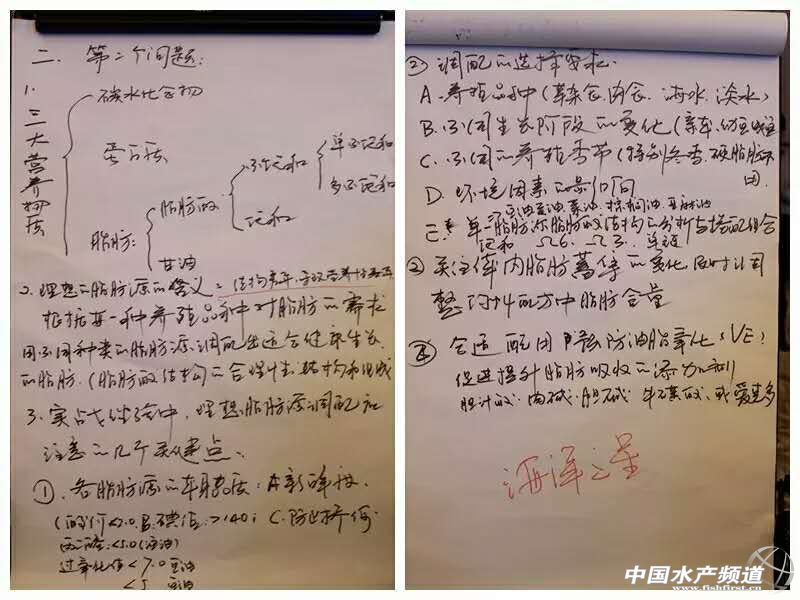 二. 第二个问题:
1. 三大营养物质
碳水化合物
蛋白质
脂肪:
脂肪酸
不饱和
单不饱和
多不饱和
饱和
甘油
2. 理想的脂肪源的含义:
根据某一种养殖品种对脂肪的需求
用不同种类的脂肪源调配出适合健康生长
的脂肪.(脂肪酸结构)的合理性结构和组成
3. 实战体验中,理想脂肪源调配和
注意的几个关键点.
① 各脂肪源的本质: A.新鲜度.
B.碘值:>140; C.防止掺假
丙二醛:<5.0(海油)
过氧化值<7.0豆油
<5 豆油
② 调配的选择要求.
A. 养殖品种(草杂食.肉食.海水.淡水)
B. 不同生长阶段的变化(
C. 不同的养殖季节(特别冬季.硬脂肪
D. 环境因素的影响
单一脂肪源脂肪酸结构的分析与搭配组合
饱和 Ω6. Ω3.
② 关注体内脂肪蓄积的变化及时调
整饲料配方中脂肪含量
④ 合适配用 防油脂氧化:VE;
促进提升脂肪吸收的添加剂
胆汁酸.肉碱.胆碱.牛磺酸.或爱多
海洋之星
中国水产频道
www.fishfirst.cn